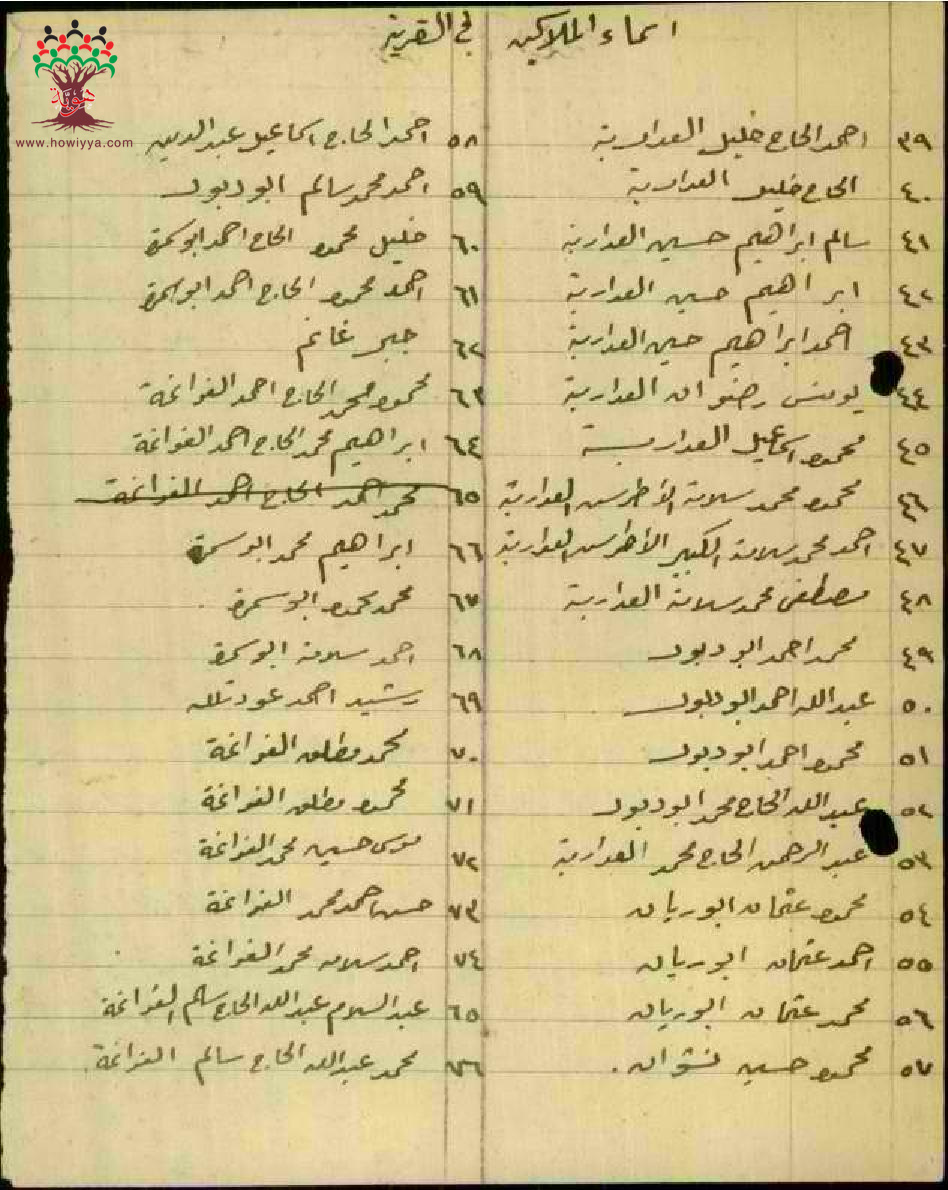 اسماء الملاكين في القرية
هوية
www.howiyya.com
٣٩ احمد الحاج خليل العدارية
٤٠ الحاج خليل العدارية
٤١ سالم ابراهيم حسين العدارية
٤٢ ابراهيم حسين العدارية
٤٣ احمد ابراهيم حسين العدارية
٤٤ يونس رضوان العدارية
٤٥ محمود اسماعيل العدارية
٤٦ محمود محمد سلامة الأطرس العدارية
٤٧ احمد محمد سلامة الكبير الأطرس العدارية
٤٨ مصطفى محمد سلامة العدارية
٤٩ محمد احمد ابو دبوس
٥٠ عبد الله احمد ابو دبوس
٥١ محمود احمد ابو دبوس
٥٢ عبد الله الحاج محمد ابو دبوس
٥٣ عبد الرحمن الحاج محمد العدارية
٥٤ محمود عثمان ابو ريان
٥٥ احمد عثمان ابو ريان
٥٦ محمد عثمان ابو ريان
٥٧ محمود حسين نشوان .
٥٨ احمد الحاج اسماعيل عبد الدين
٥٩ احمد محمد سالم ابو دبوس
٦٠ خليل محمود الحاج احمد ابو سمرة
٦١ احمد محمود الحاج احمد ابو سمرة
٦٢ جبر غانم
٦٣ محمود محمد الحاج احمد الفواغمة
٦٤ ابراهيم محمد الحاج احمد الفواغمة
٦٥ محمد احمد الحاج احمد الفواغمة
٦٦ ابراهيم محمد ابو سمرة
٦٧ محمد محمود ابو سمرة
٦٨ احمد سلامة ابو سمرة
٦٩ رشيد احمد عودتلله
٧٠ محمد مطلق الفواغمة
٧١ محمود مطلق الفواغمة
٧٢ موسى حسين محمد الفواغمة
٧٣ حسن احمد محمد الفواغمة
٧٤ احمد سلامه محمد الفواغمة
٦٥ عبد السلام عبد الله الحاج سالم الفواغمة
٧٦ محمد عبد الله الحاج سالم الفواغمة